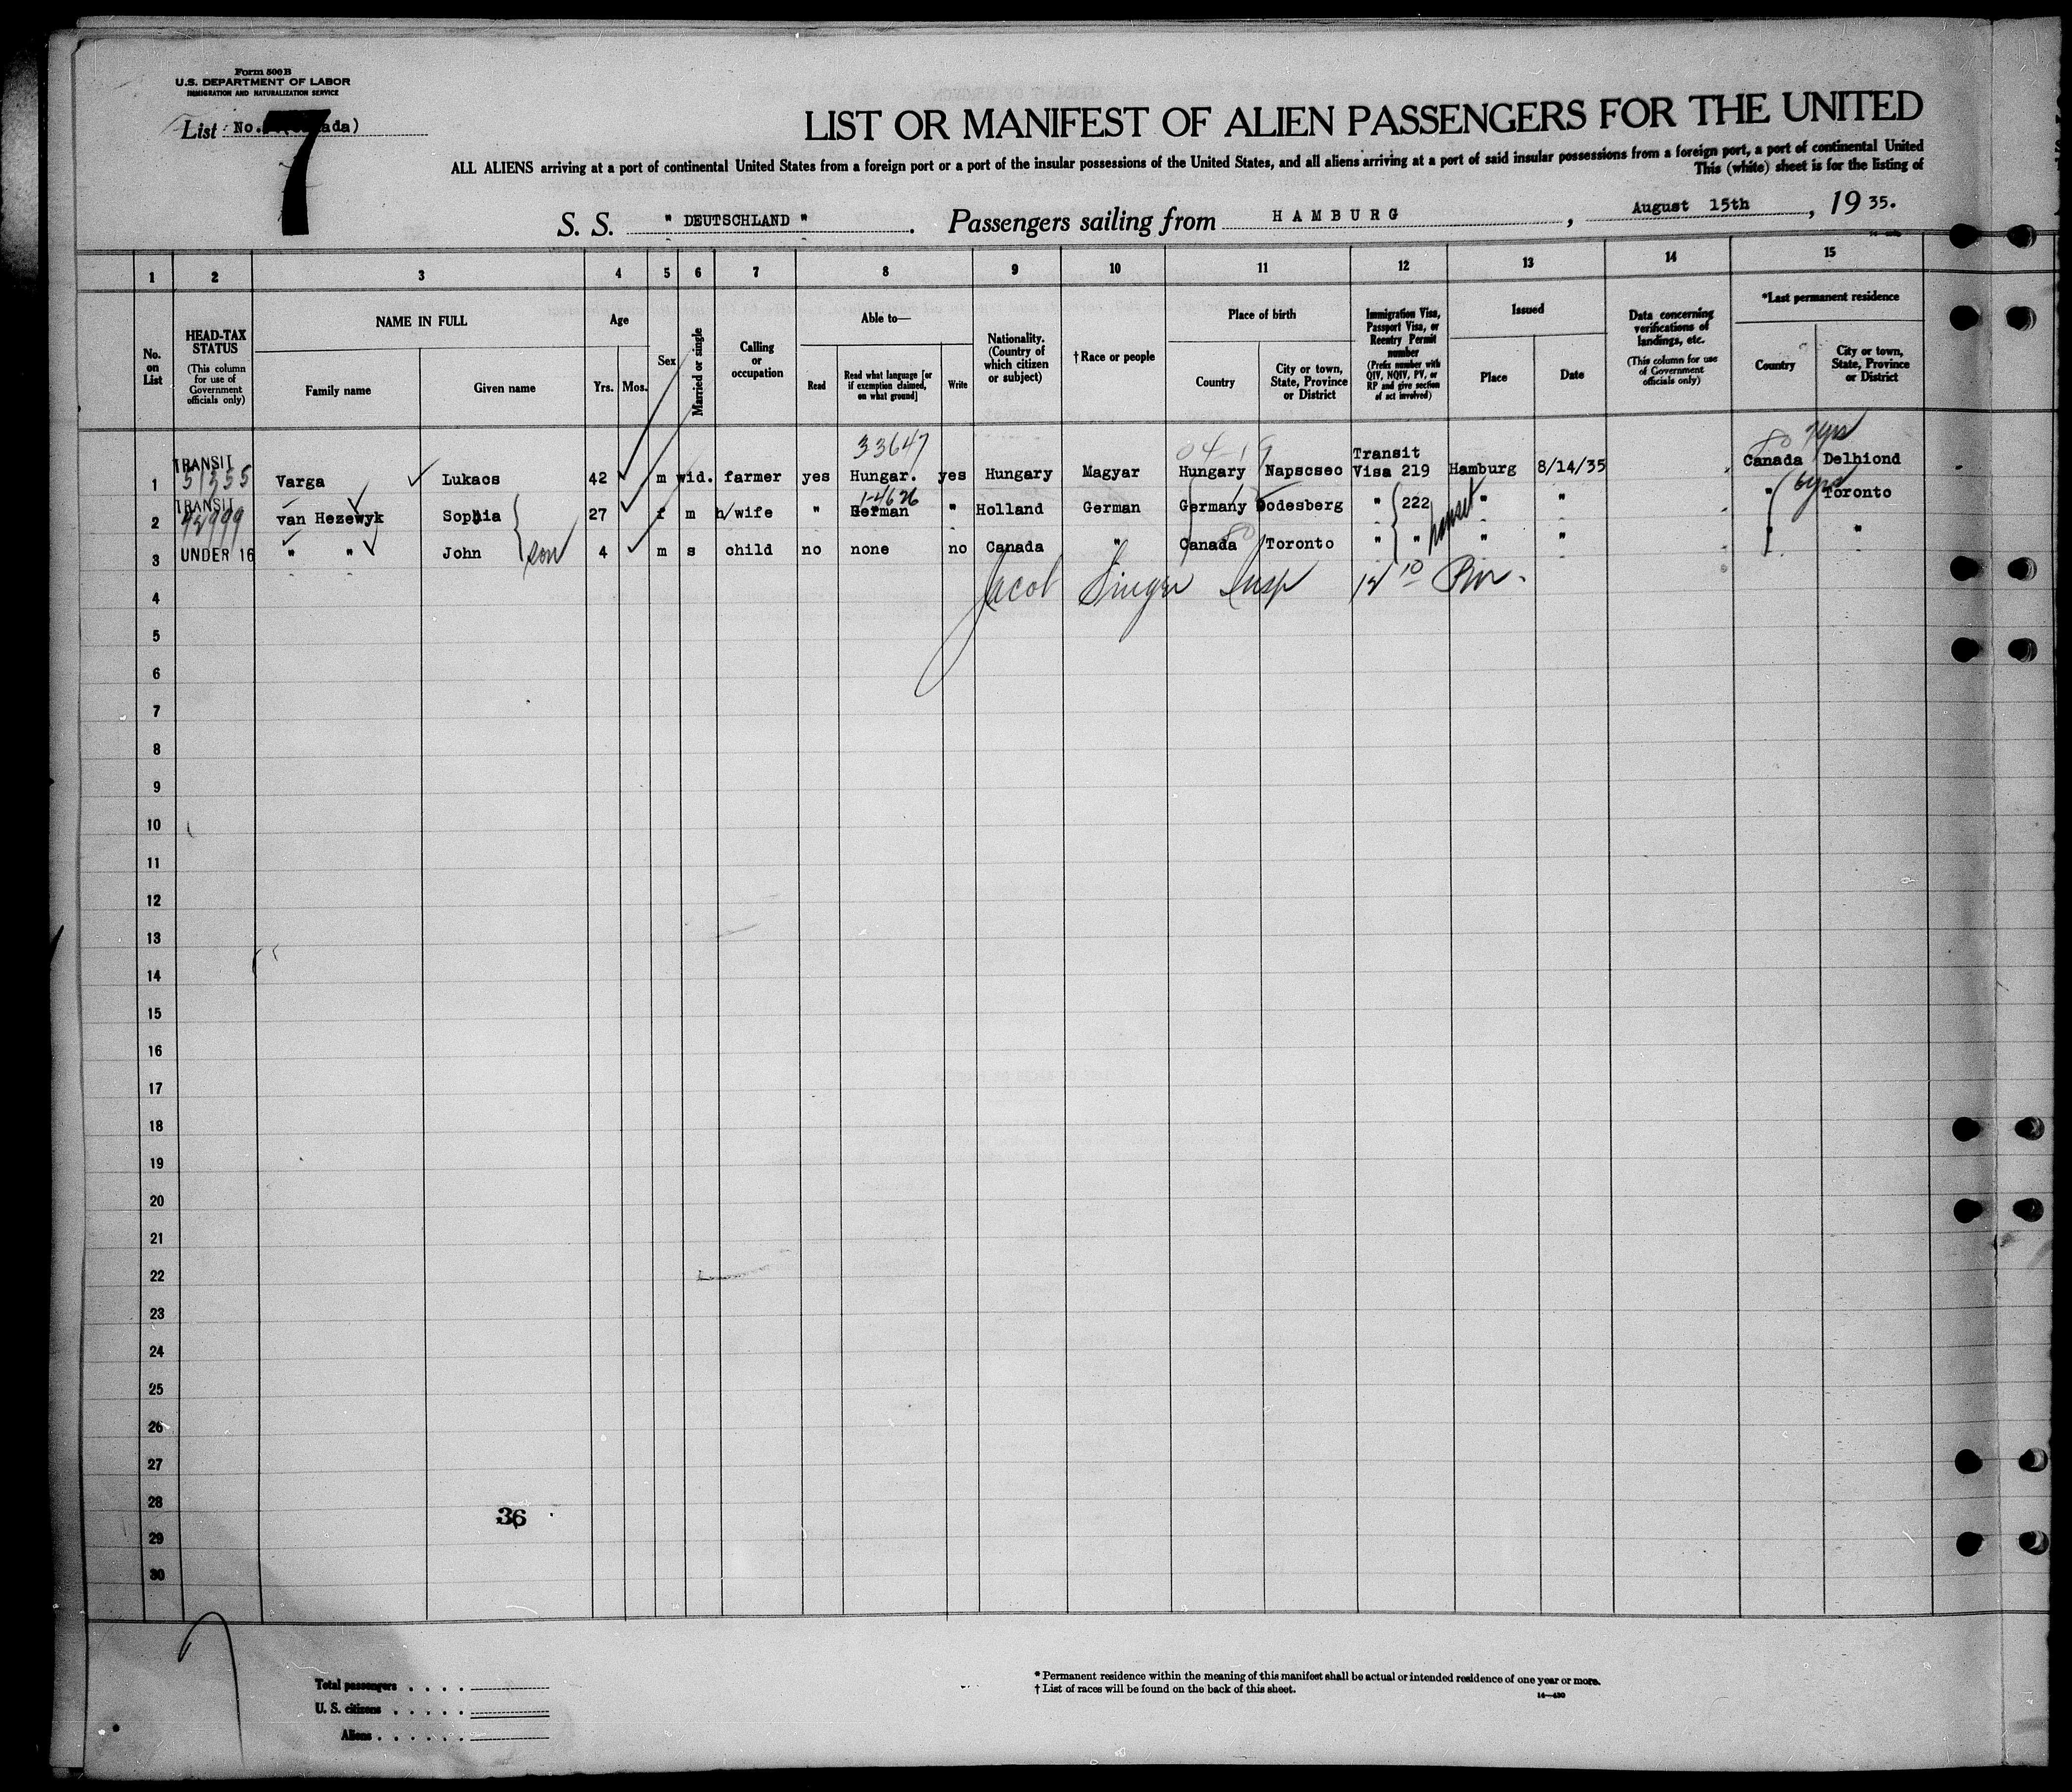 Form 500 B
U.S. DEPARTMENT OF LABOR
IMMIGRATION AND NATURALIZATION SERVICE
List No. ada)
7
LIST OR MANIFEST OF ALIEN PASSENGERS FOR THE UNITED
ALL ALIENS arriving at a port of continental United States from a foreign port or a port of the insular possessions of the United States, and all aliens arriving at a port of said insular possessions from a foreign port, a port of continental United
This (white) sheet is for the listing of
S. S. " DEUTSCHLAND " . Passengers sailing from HAMBURG , August 15th , 19 35.
1 2 3 4 5 6 7 8 9 10 11 12 13 14 15
No. on List
HEAD-TAX STATUS
(This column for use of Government officials only)
NAME IN FULL
Family name
Given name
Age
Yrs. Mos.
Sex
Married or single
Calling or occupation
Able to—
Read
Read what language [or if exemption claimed, on what ground]
Write
Nationality. (Country of which citizen or subject)
†Race or people
Place of birth
Country
City or town, State, Province or District
Immigration Visa, Passport Visa, or Reentry Permit number
(Prefix number with QIV, NQIV, PV, or RP and give section of act involved)
Issued
Place
Date
Data concerning verifications of landings, etc.
(This column for use of Government officials only)
*Last permanent residence
Country
City or town, State, Province or District
33647 04-19 80 7yrs
1 TRANSIT 51355 Varga Lukacs 42 m wid. farmer yes Hungar. yes Hungary Magyar Hungary Napscseo Transit Visa 219 Hamburg 8/14/35 Canada Delhiond
1-4626 6yrs
2 TRANSIT van Hezewyk Sophia 27 f m h/wife " German " Holland German Germany Godesberg " 222 " " " Toronto
3 UNDER 16 " " John son 4 m s child no none no Canada " Canada Toronto " " " " " "
4 Jacob Singer Insp 12 10 Pm.
5
6
7
8
9
10
11
12
13
14
15
16
17
18
19
20
21
22
23
24
25
26
27
28
36
29
30
Total passengers
U. S. citizens
Aliens
* Permanent residence within the meaning of this manifest shall be actual or intended residence of one year or more.
† List of races will be found on the back of this sheet.
14—430